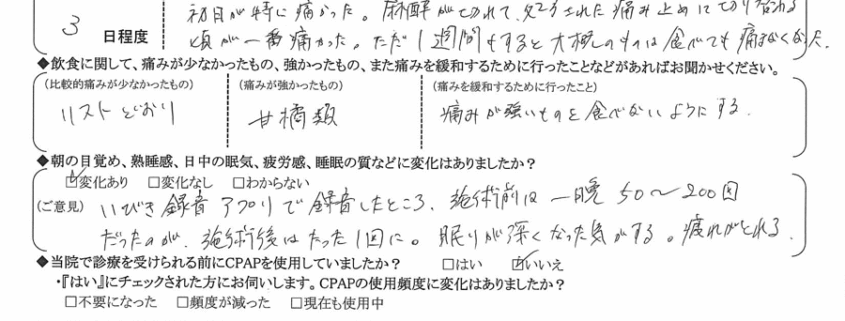 初日が特に痛かった。麻酔が切れて、処方された痛み止めに切り替わる
3 日程度 頃が一番痛かった。ただ1週間もすると大概のものは食べても痛まなくなった。
◆飲食に関して、痛みが少なかったもの、強かったもの、また痛みを緩和するために行ったことなどがあればお聞かせください。
(比較的痛みが少なかったもの) (痛みが強かったもの) (痛みを緩和するために行ったこと)
リストどおり 甘橘類 痛みが強いものを食べないようにする。
◆朝の目覚め、熟睡感、日中の眠気、疲労感、睡眠の質などに変化はありましたか?
☑変化あり □変化なし □わからない
(ご意見) いびき録音アプリで録音したところ、施術前は一晩50〜200回
だったのが、施術後はたった1回に。眠りが深くなった気がする。疲れがとれる。
◆当院で診療を受けられる前にCPAPを使用していましたか? □はい ☑いいえ
・『はい』にチェックされた方にお伺いします。CPAPの使用頻度に変化はありましたか?
□不要になった □頻度が減った □現在も使用中